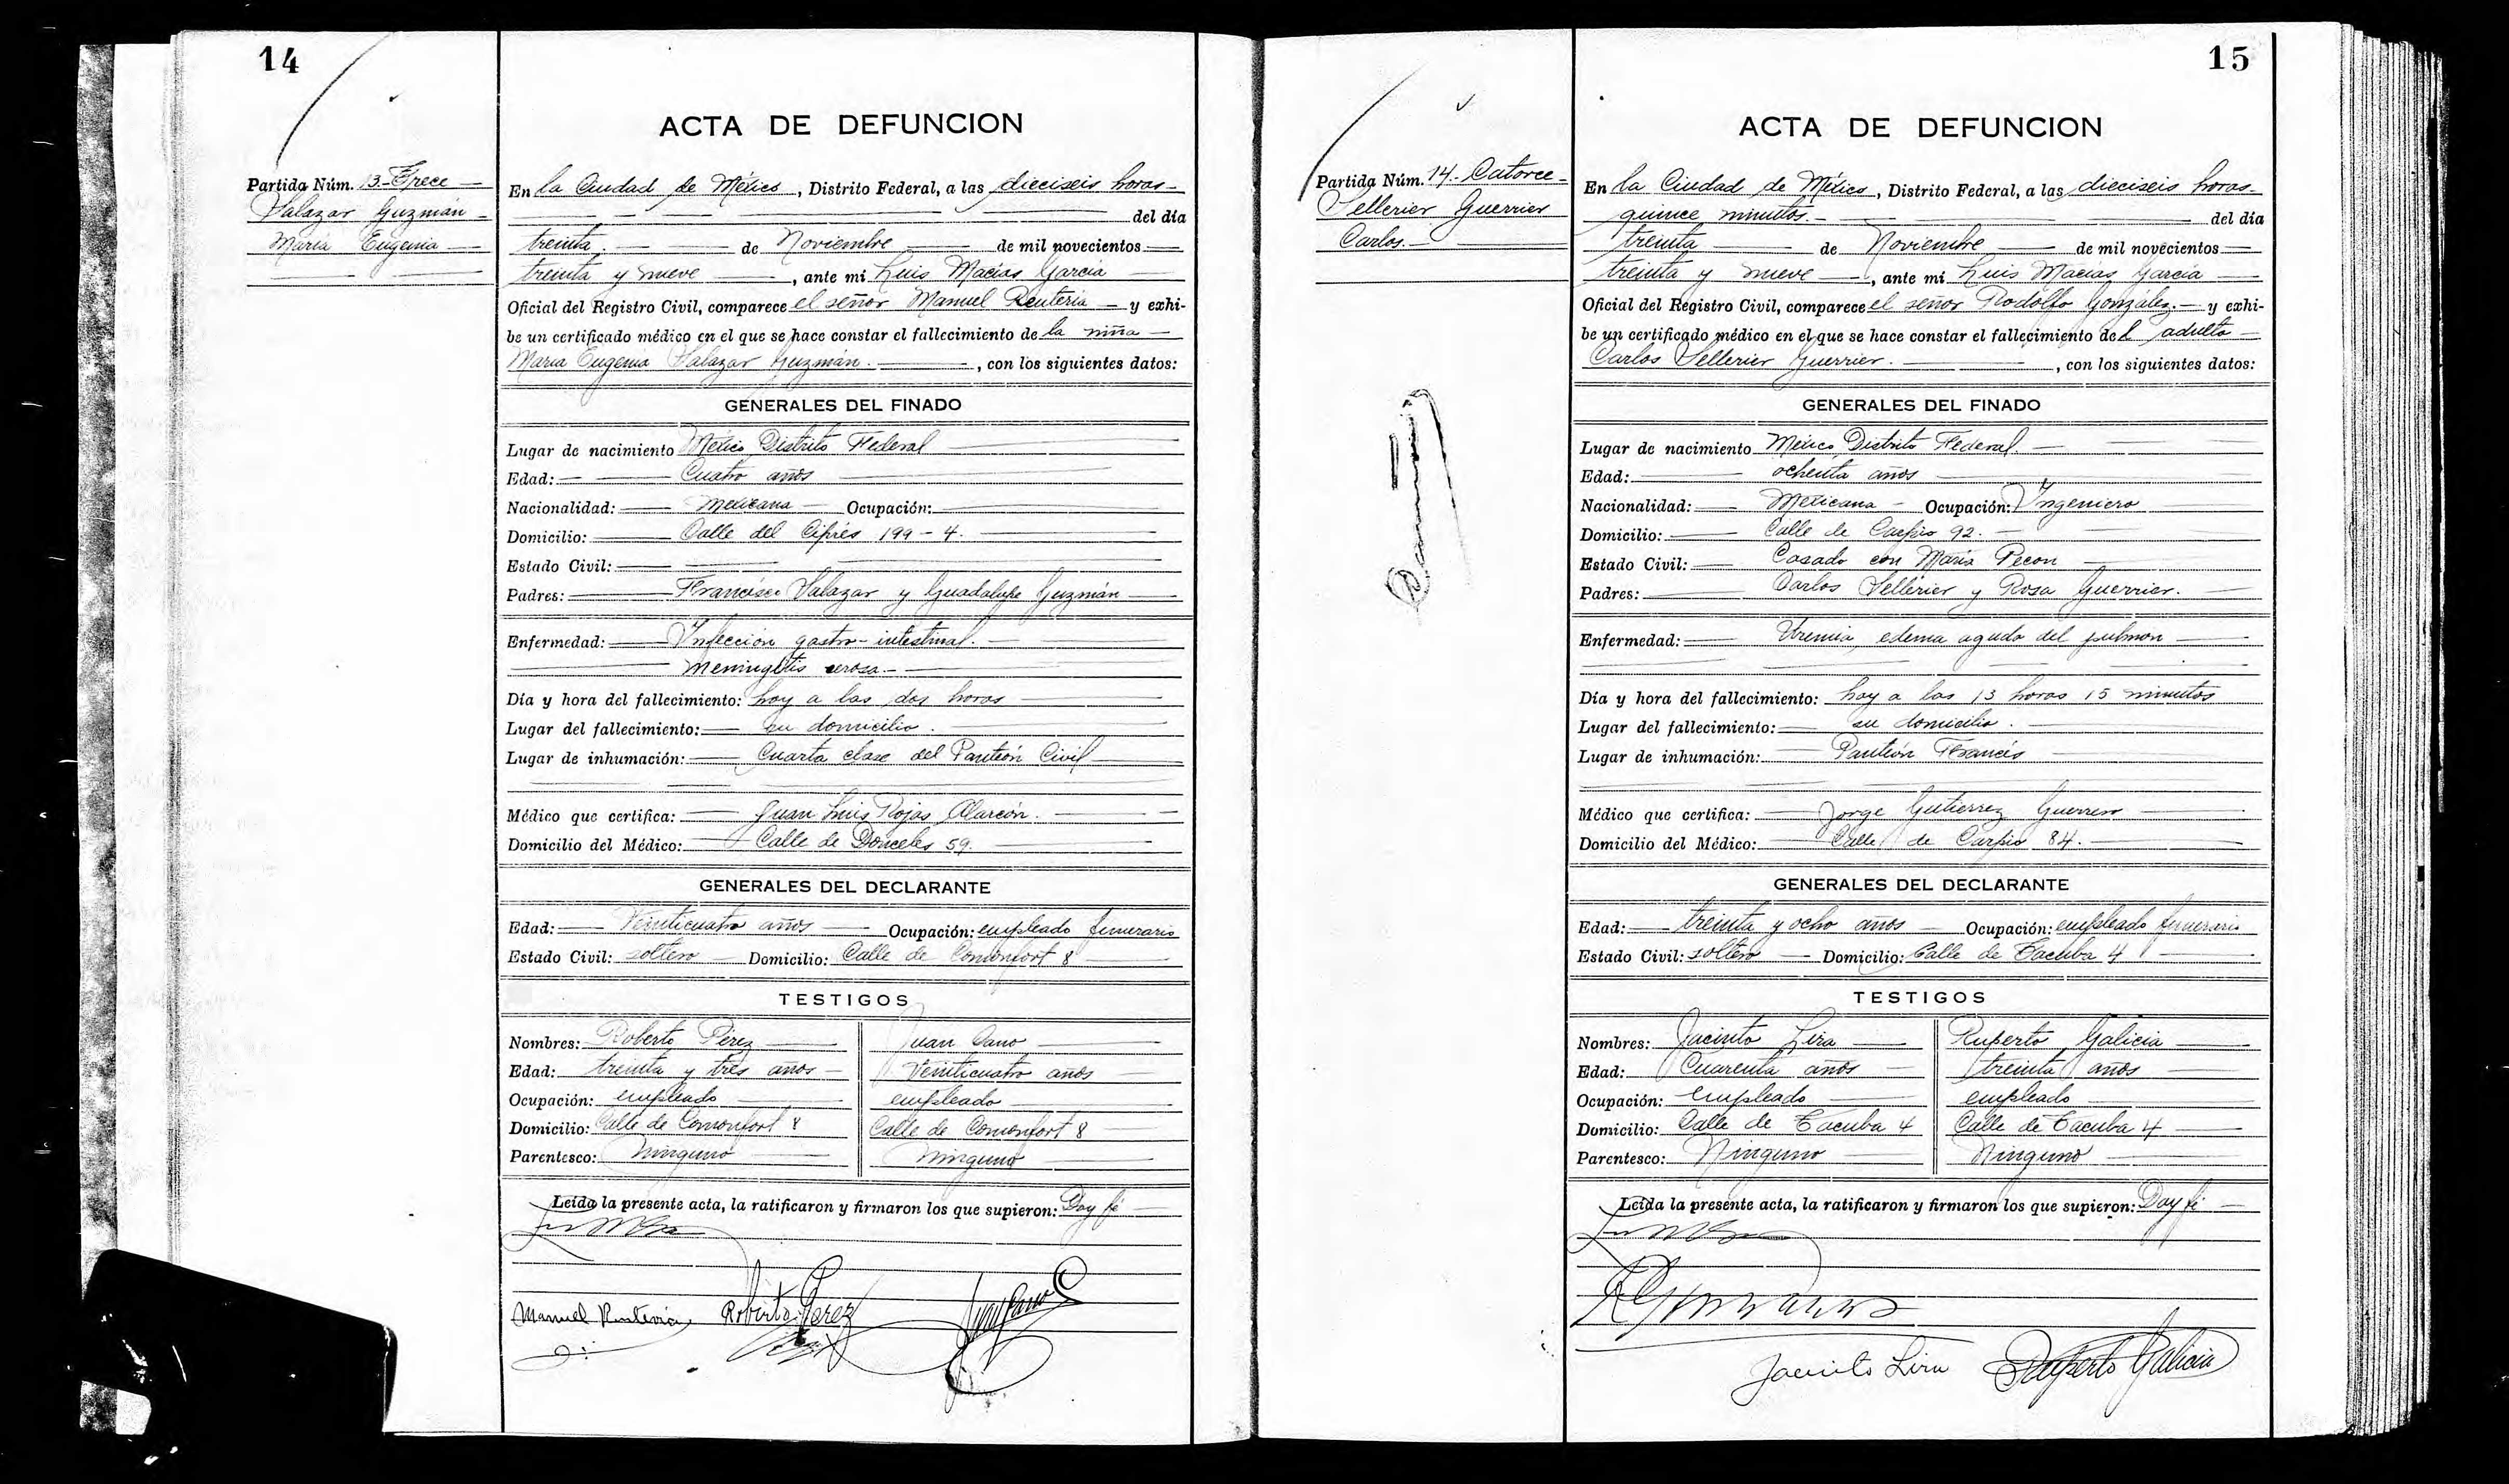 14
ACTA DE DEFUNCION
Partida Núm. 13.-Trece
Salazar Guzmán
María Eugenia
En la Ciudad de México, Distrito Federal, a las dieciseis horas
del día
treinta. de Noviembre de mil novecientos
treinta y nueve, ante mí Luis Macías García
Oficial del Registro Civil, comparece el señor Manuel Rentería y exhi-
be un certificado médico en el que se hace constar el fallecimiento de la niña
María Eugenia Salazar Guzmán., con los siguientes datos:
GENERALES DEL FINADO
Lugar de nacimiento México Distrito Federal
Edad: Cuatro años
Nacionalidad: Mexicana Ocupación:
Domicilio: Calle del Ciprés 199-4.
Estado Civil:
Padres: Francisco Salazar y Guadalupe Guzmán
Enfermedad: Infección gastro-intestinal.
Meningitis serosa.
Día y hora del fallecimiento: hoy a las dos horas
Lugar del fallecimiento: su domicilio.
Lugar de inhumación: Cuarta clase del Panteón Civil
Médico que certifica: Juan Luis Rojas Alarcón.
Domicilio del Médico: Calle de Donceles 59.
GENERALES DEL DECLARANTE
Edad: Veinticuatro años Ocupación: empleado funerario
Estado Civil: soltero Domicilio: Calle de Comonfort 8
TESTIGOS
Nombres: Roberto Pérez Juan Cano
Edad: treinta y tres años Veinticuatro años
Ocupación: empleado empleado
Domicilio: Calle de Comonfort 8 Calle de Comonfort 8
Parentesco: Ninguno Ninguno
Leída la presente acta, la ratificaron y firmaron los que supieron: Doy fé
Manuel Rentería Roberto Perez Juan Cano
15
ACTA DE DEFUNCION
Partida Núm. 14.-Catorce
Sellerier Guerrier
Carlos.
En la Ciudad de México, Distrito Federal, a las dieciseis horas
quince minutos. del día
treinta de Noviembre de mil novecientos
treinta y nueve, ante mí Luis Macías García
Oficial del Registro Civil, comparece el señor Rodolfo González. y exhi-
be un certificado médico en el que se hace constar el fallecimiento del adulto
Carlos Sellerier Guerrier., con los siguientes datos:
GENERALES DEL FINADO
Lugar de nacimiento México Distrito Federal.
Edad: ochenta años
Nacionalidad: Mexicana Ocupación: Ingeniero
Domicilio: Calle de Carpio 92.
Estado Civil: Casado con María Pecon
Padres: Carlos Sellérier y Rosa Guerrier.
Enfermedad: Uremia, edema agudo del pulmon
Día y hora del fallecimiento: hoy a las 13 horas 15 minutos
Lugar del fallecimiento: su domicilio.
Lugar de inhumación: Panteón Francés
Médico que certifica: Jorge Gutierrez Guerrero
Domicilio del Médico: Calle de Carpio 84.
GENERALES DEL DECLARANTE
Edad: treinta y ocho años Ocupación: empleado funerario
Estado Civil: soltero Domicilio: Calle de Tacuba 4
TESTIGOS
Nombres: Jacinto Lira Ruperto Galicia
Edad: Cuarenta años treinta años
Ocupación: empleado empleado
Domicilio: Calle de Tacuba 4 Calle de Tacuba 4
Parentesco: Ninguno Ninguno
Leída la presente acta, la ratificaron y firmaron los que supieron: Doy fé
Jacinto Lira Ruperto Galicia